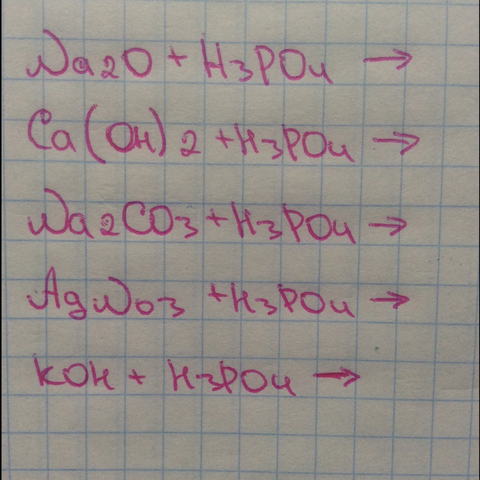 Na2O + H3PO4 →
Ca(OH)2 + H3PO4 →
Na2CO3 + H3PO4 →
AgNO3 + H3PO4 →
KOH + H3PO4 →